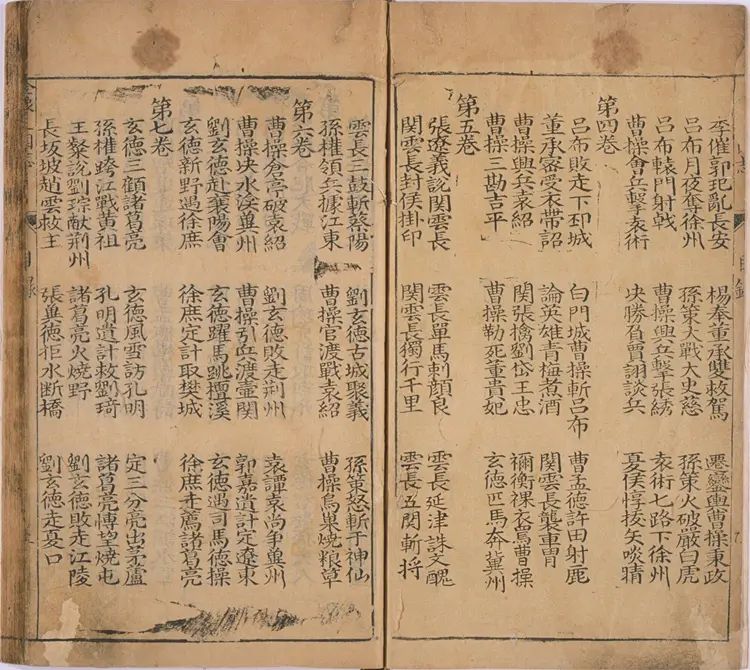 李傕郭汜亂長安 楊奉董承雙救駕 遷鑾輿曹操秉政
呂布月夜奪徐州 孫策大戰太史慈 孫策火破嚴白虎
呂布轅門射戟 曹操興兵擊張綉 袁術七路下徐州
曹操會兵擊袁術 决勝負賈詡談兵 夏侯惇拔矢啖睛
第四卷
呂布敗走下邳城 白門城曹操斬呂布 曹孟德許田射鹿
董承密受衣帶詔 論英雄青梅煮酒 関雲長襲車胄
曹操興兵袁紹 関張擒劉岱王忠 禰衡裸衣罵曹操
曹操三勘吉平 曹操勒死董貴妃 玄德匹馬奔冀州
第五卷
張遼義說関雲長 雲長單馬刺顔良 雲長延津誅文醜
関雲長封侯掛印 関雲長獨行千里 雲長五関斬将
雲長三鼓斬蔡陽 劉玄德古城聚義 孫策怒斬于神仙
孫權領兵據江東 曹操官渡戰袁紹 曹操烏巢燒粮草
第六卷
曹操倉亭破袁紹 劉玄德敗走荆州 袁譚袁尚爭冀州
曹操决水渰冀州 曹操引兵渡壷関 郭嘉遺計定遼東
劉玄德赴襄陽會 玄德躍馬跳檀溪 玄德遇司馬德操
玄德新野遇徐庶 徐庶定計取樊城 徐庶走薦諸葛亮
第七卷
玄德三顧諸葛亮 玄德風雪訪孔明 定三分亮出茅廬
孫權跨江戰黄祖 孔明遺計救劉琦 諸葛亮愽望燒屯
王粲說劉琮献荆州 諸葛亮火燒新野 劉玄德敗走江陵
長坂坡趙雲救主 張冀德拒水断橋 劉玄德走夏口
目錄